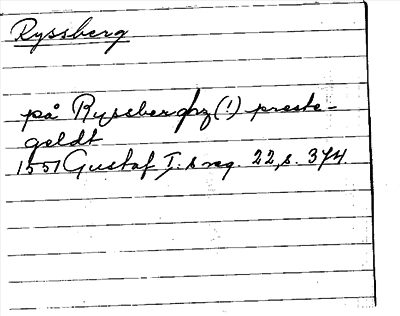 Ryssberg
på Ryssberghz (!) preste-
geldt
1551 Gustaf I:s reg. 22, s. 374